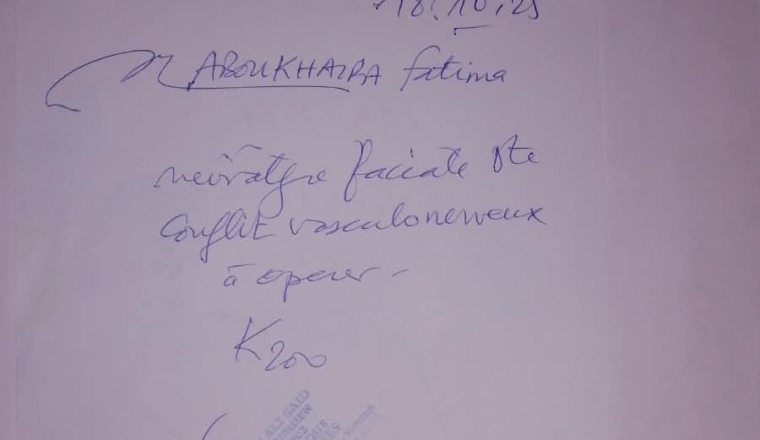 18.10.25
ABOUKHAIRA fatima
nevralgie faciale Dte
Conflit vasculonerveux
à opérer -
K200
ALI SAID